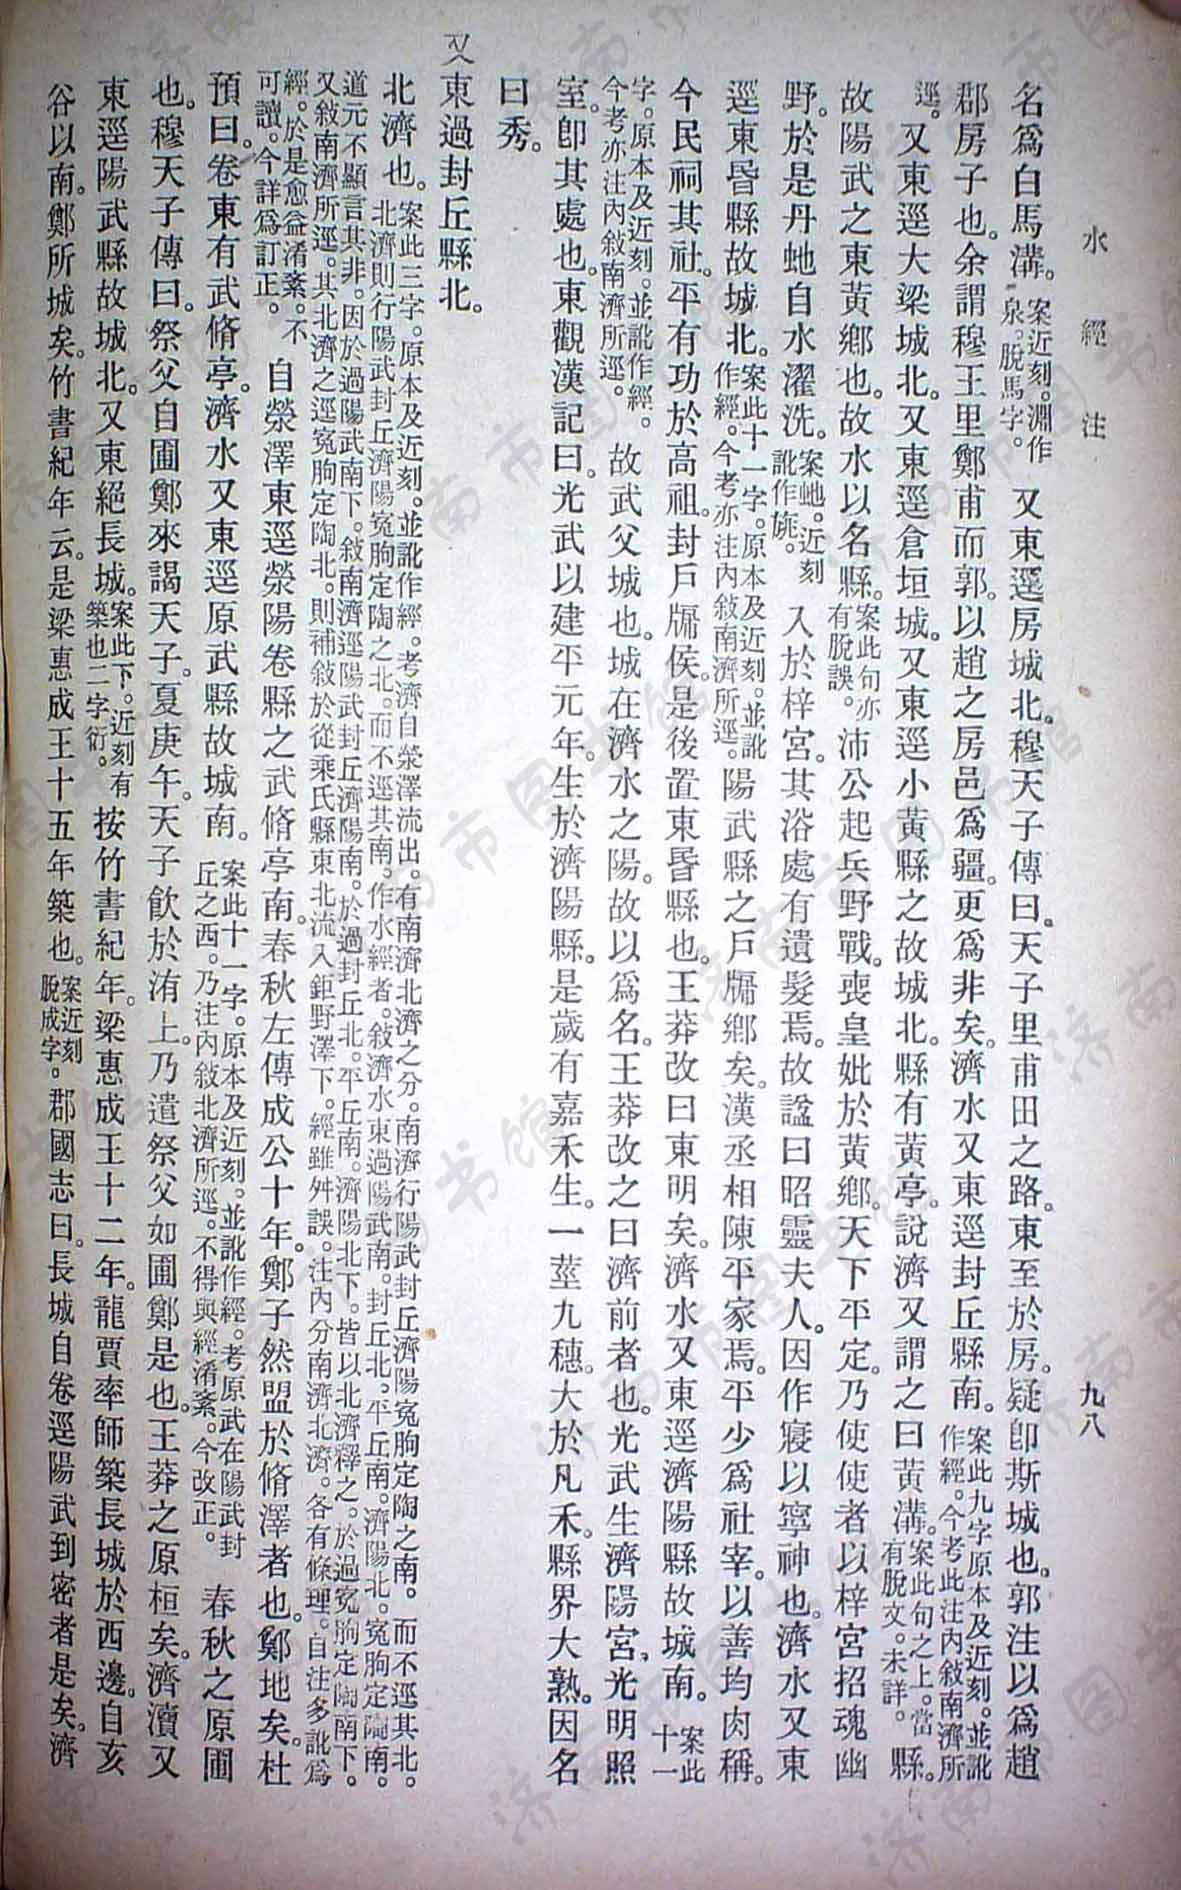 水經注
九八
名爲白馬溝。案近刻。淵作泉。脫馬字。又東逕房城北。穆天子傳曰。天子里甫田之路。東至於房。疑卽斯城也。郭注以爲趙
郡房子也。余謂穆王里鄭甫而郭。以趙之房邑爲疆。更爲非矣。濟水又東逕封丘縣南。案此九字原本及近刻。並訛作經。今考此注內敍南濟所
逕。又東逕大梁城北。又東逕倉垣城。又東逕小黃縣之故城北。縣有黃亭。說濟又謂之曰黃溝。案此句之上。當有脫文。未詳。縣。
故陽武之東黃鄉也。故水以名縣。案此句亦有脫誤。沛公起兵野戰。喪皇妣於黃鄉。天下平定。乃使使者以梓宮招魂幽
野。於是丹虵自水濯洗。案虵。近刻訛作旐。入於梓宮。其浴處有遺髮焉。故諡曰昭靈夫人。因作寢以寧神也。濟水又東
逕東昏縣故城北。案此十一字。原本及近刻。並訛作經。今考亦注內敍南濟所逕。陽武縣之戶牖鄉矣。漢丞相陳平家焉。平少爲社宰。以善均肉稱。
今民祠其社。平有功於高祖。封戶牖侯。是後置東昏縣也。王莽改曰東明矣。濟水又東逕濟陽縣故城南。案此十一
字。原本及近刻。並訛作經。今考亦注內敍南濟所逕。故武父城也。城在濟水之陽。故以爲名。王莽改之曰濟前者也。光武生濟陽宮。光明照
室。卽其處也。東觀漢記曰。光武以建平元年。生於濟陽縣。是歲有嘉禾生。一莖九穗。大於凡禾。縣界大熟。因名
曰秀。
又東過封丘縣北。
北濟也。案此三字。原本及近刻。並訛作經。考濟自滎澤流出。有南濟北濟之分。南濟行陽武封丘濟陽冤朐定陶之南。而不逕其北。北濟則行陽武封丘濟陽冤朐定陶之北。而不逕其南。作水經者。敍濟水東過陽武南。封丘北。平丘南。濟陽北。冤朐定陶南。
道元不顯言其非。因於過陽武南下。敍南濟逕陽武封丘濟陽南。於過封丘北。平丘南。濟陽北下。皆以北濟釋之。於過冤朐定陶南下。又敍南濟所逕。其北濟之逕冤朐定陶北。則補敍於從乘氏縣東北流入鉅野澤下。經雖舛誤。注內分南濟北濟。各有條理。自注多訛爲
經。於是愈益淆紊。不可讀。今詳爲訂正。自滎澤東逕滎陽卷縣之武脩亭南。春秋左傳成公十年。鄭子然盟於脩澤者也。鄭地矣。杜
預曰。卷東有武脩亭。濟水又東逕原武縣故城南。案此十一字。原本及近刻。並訛作經。考原武在陽武封丘之西。乃注內敍北濟所逕。不得與經淆紊。今改正。春秋之原圃
也。穆天子傳曰。祭父自圃鄭來謁天子。夏庚午。天子飲於洧上。乃遣祭父如圃鄭是也。王莽之原桓矣。濟瀆又
東逕陽武縣故城北。又東絕長城。案此下。近刻有築也二字衍。按竹書紀年。梁惠成王十二年。龍賈率師築長城於西邊。自亥
谷以南。鄭所城矣。竹書紀年云。是梁惠成王十五年築也。案近刻脫成字。郡國志曰。長城自卷逕陽武到密者是矣。濟